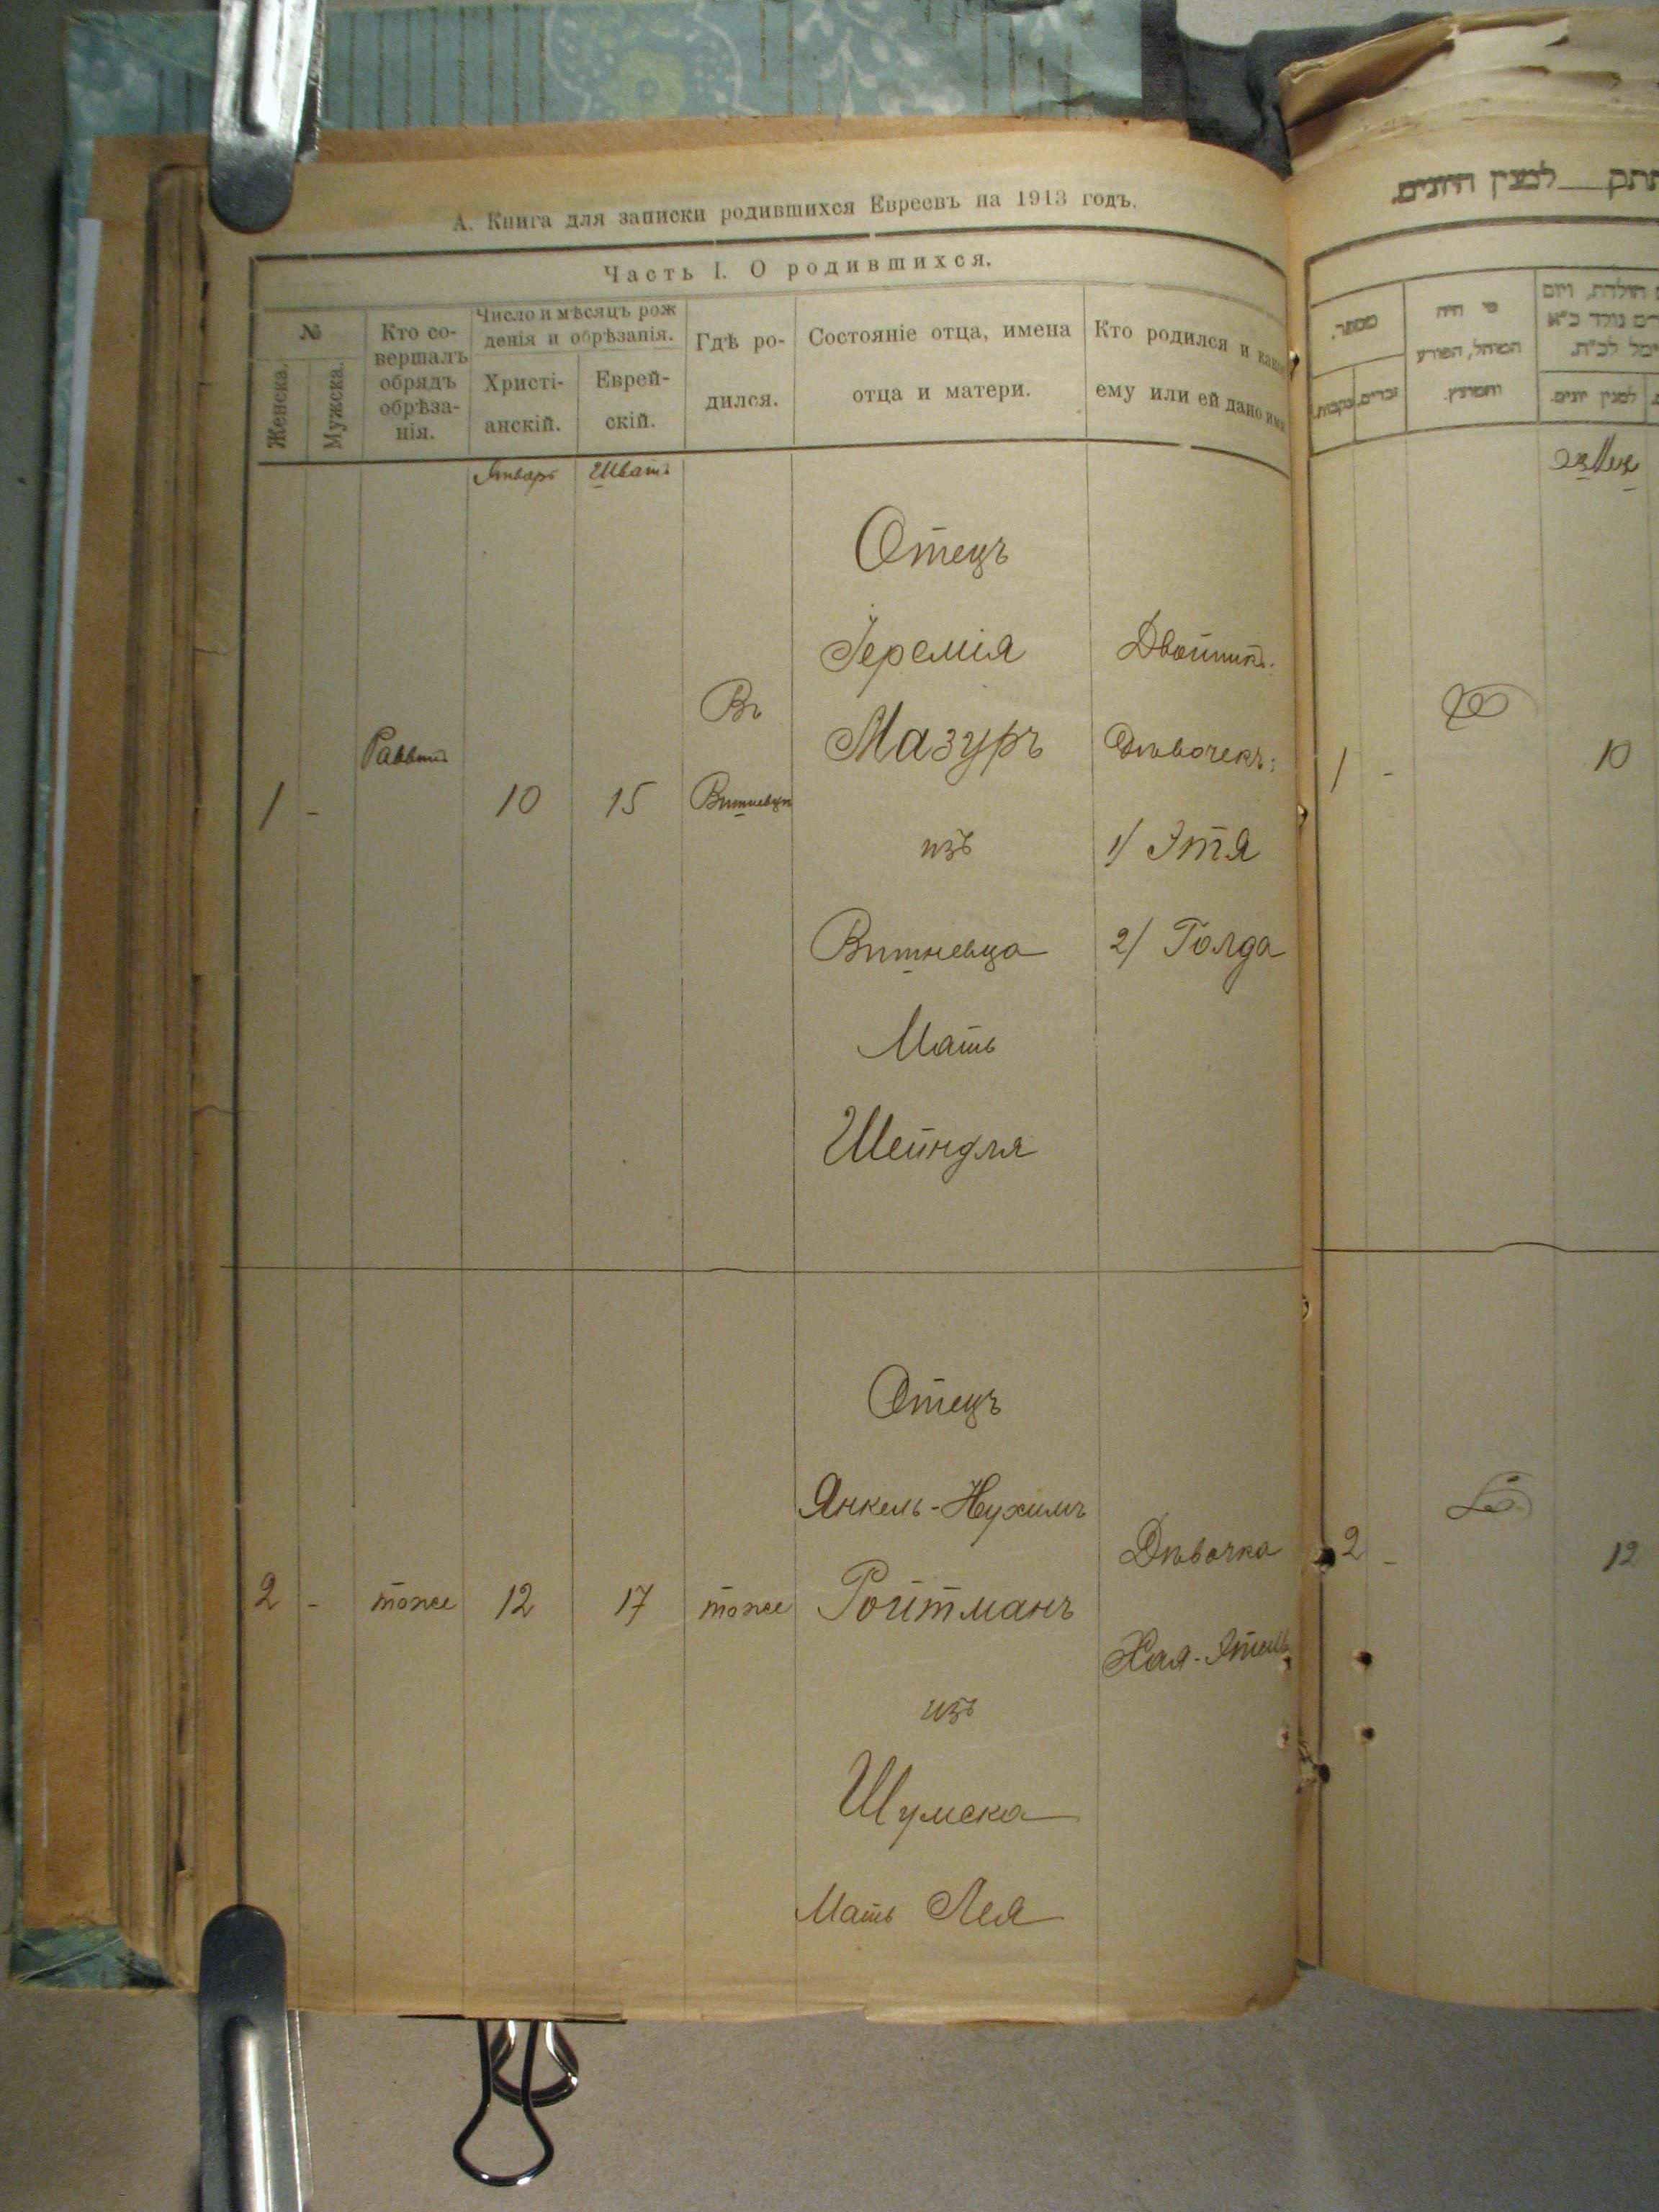 А. Книга для записки родившихся Евреевъ на 1913 годъ.
Часть I. О родившихся.
№
Женска.
Мужска.
Кто со-
вершалъ
обрядъ
обрѣза-
нія.
Число и мѣсяцъ рож
денія и обрѣзанія.
Христі-
анскій.
Еврей-
скій.
Гдѣ ро-
дился.
Состояніе отца, имена
отца и матери.
Кто родился и какое
ему или ей дано имя
Январь
Шватъ
1 -
Раввинъ
10
15
Въ
Вишневцѣ
Отецъ
Іеремія
Мазуръ
изъ
Вишневца
Мать
Шейндля
Двойник.
Дѣвочекъ:
1/ Этя
2/ Голда
2 -
тоже
12
17
тоже
Отецъ
Янкель-Нухимъ
Ройтманъ
изъ
Шумска
Мать Лея
Дѣвочка
Хая-
למנין היונים.
מספר.
נקבות.
זכרים.
מי היה
המוהל, הפורע
והמוצץ.
למנין יונים.
1 -
10
2 -
12